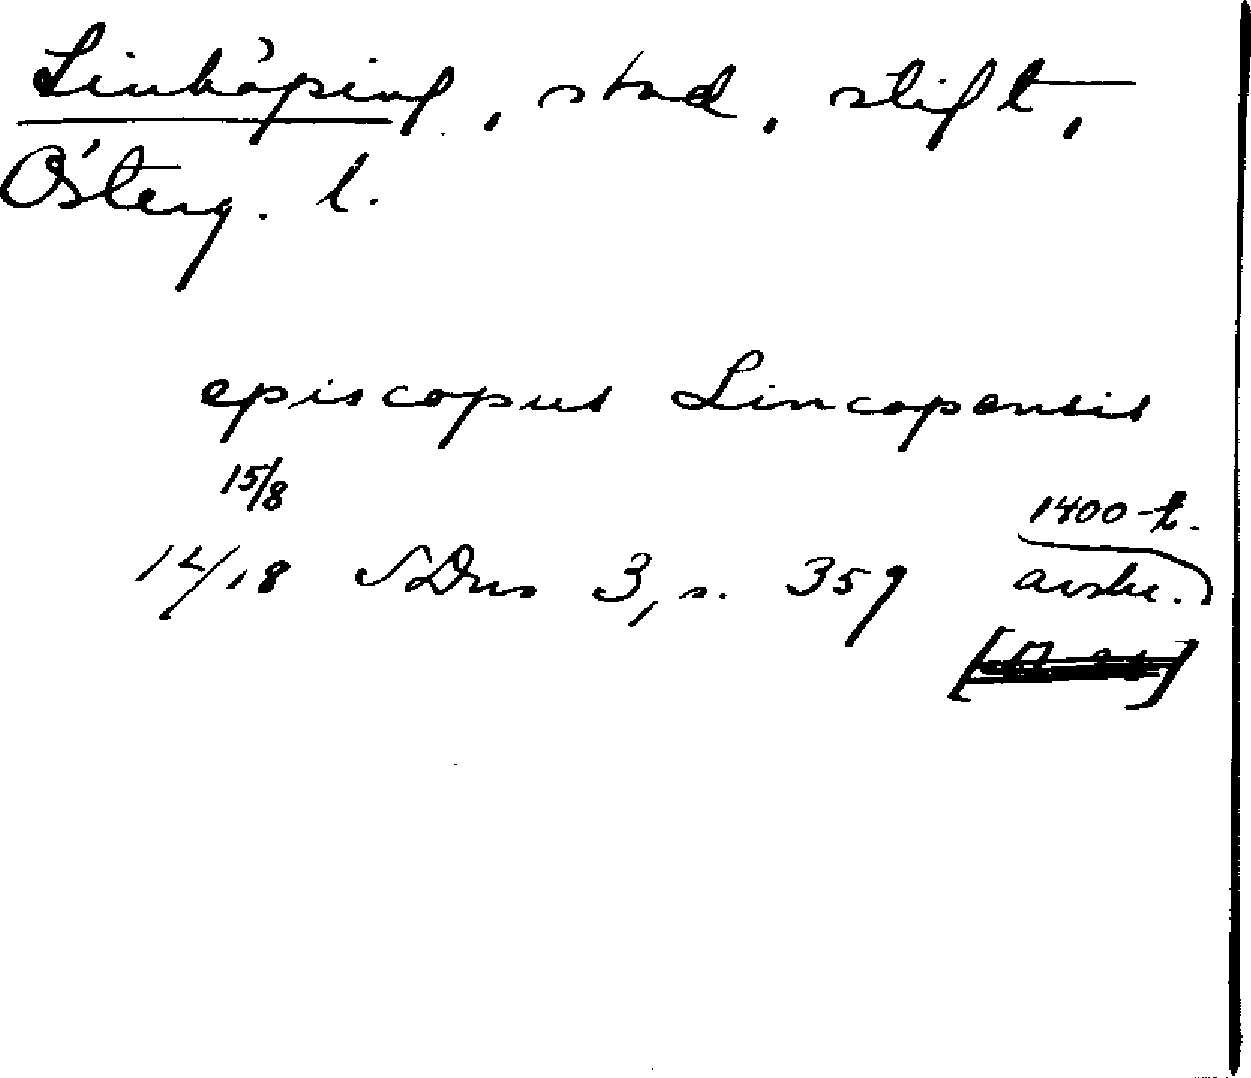 Linköping, stad, stift,
Österg. l.
episcopus Lincopensis
15/8
1400-t.
14/18 SDns 3, s. 359 avskr.